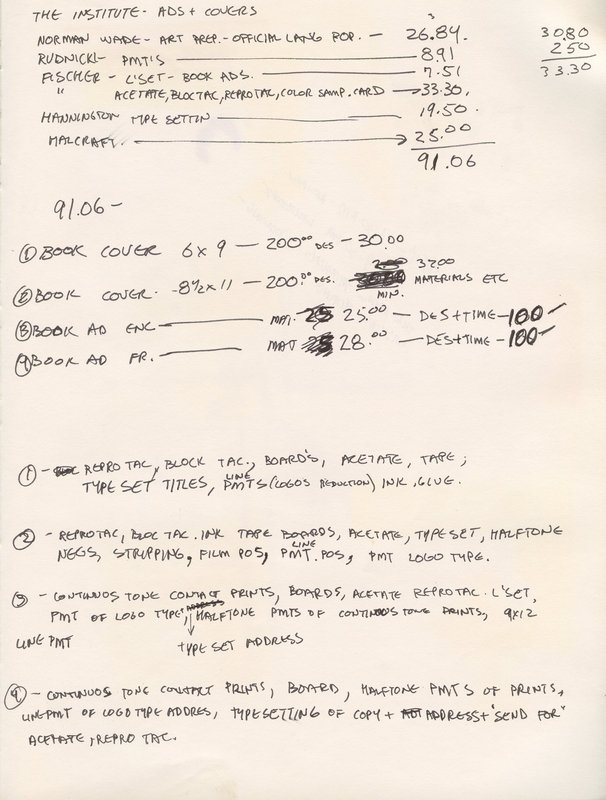 THE INSTITUTE - ADS + COVERS
NORMAN WADE - ART PREP. - OFFICIAL LANG POP. — 26.84.
3
3080
250
33.30
RUDNICKI - PMT'S — 8.91
FISCHER - L'SET - BOOK ADS. — 7.51
" ACETATE, BLOCTAC, REPROTAC, COLOR SAMP. CARD → 33.30.
MANNINGTON TYPE SETTIN — 19.50.
MALCRAFT. → 25.00
91.06
91.06 -
① BOOK COVER 6 x 9 — 200.00 DES - 30.00
② BOOK COVER - 8½ x 11 — 200.00 DES. 37.00 MATERIALS ETC
MIN.
③ BOOK AD ENG — MAT. 25.00 — DES + TIME - 100 -
④ BOOK AD FR. — MAT 28.00 — DES + TIME - 100 -
① - REPRO TAC, BLOCK TAC., BOARD'S, ACETATE, TAPE;
TYPE SET TITLES, LINE PMTS (LOGOS REDUCTION) INK, GLUE.
② - REPROTAC, BLOC TAC. INK TAPE BOARDS, ACETATE, TYPESET, HALFTONE
NEGS, STRIPPING, FILM POS, LINE PMT. POS, PMT LOGO TYPE.
③ - CONTINUOS TONE CONTACT PRINTS, BOARDS, ACETATE REPROTAC. L'SET,
PMT OF LOGO TYPE, HALFTONE PMTS OF CONTINUOS TONE PRINTS, 9X12
LINE PMT
TYPE SET ADDRESS
④ - CONTINUOS TONE CONTACT PRINTS, BOARD, HALFTONE PMTS OF PRINTS,
LINE PMT OF LOGO TYPE ADDRES, TYPESETTING OF COPY + ADDRESS + "SEND FOR"
ACETATE, REPRO TAC.